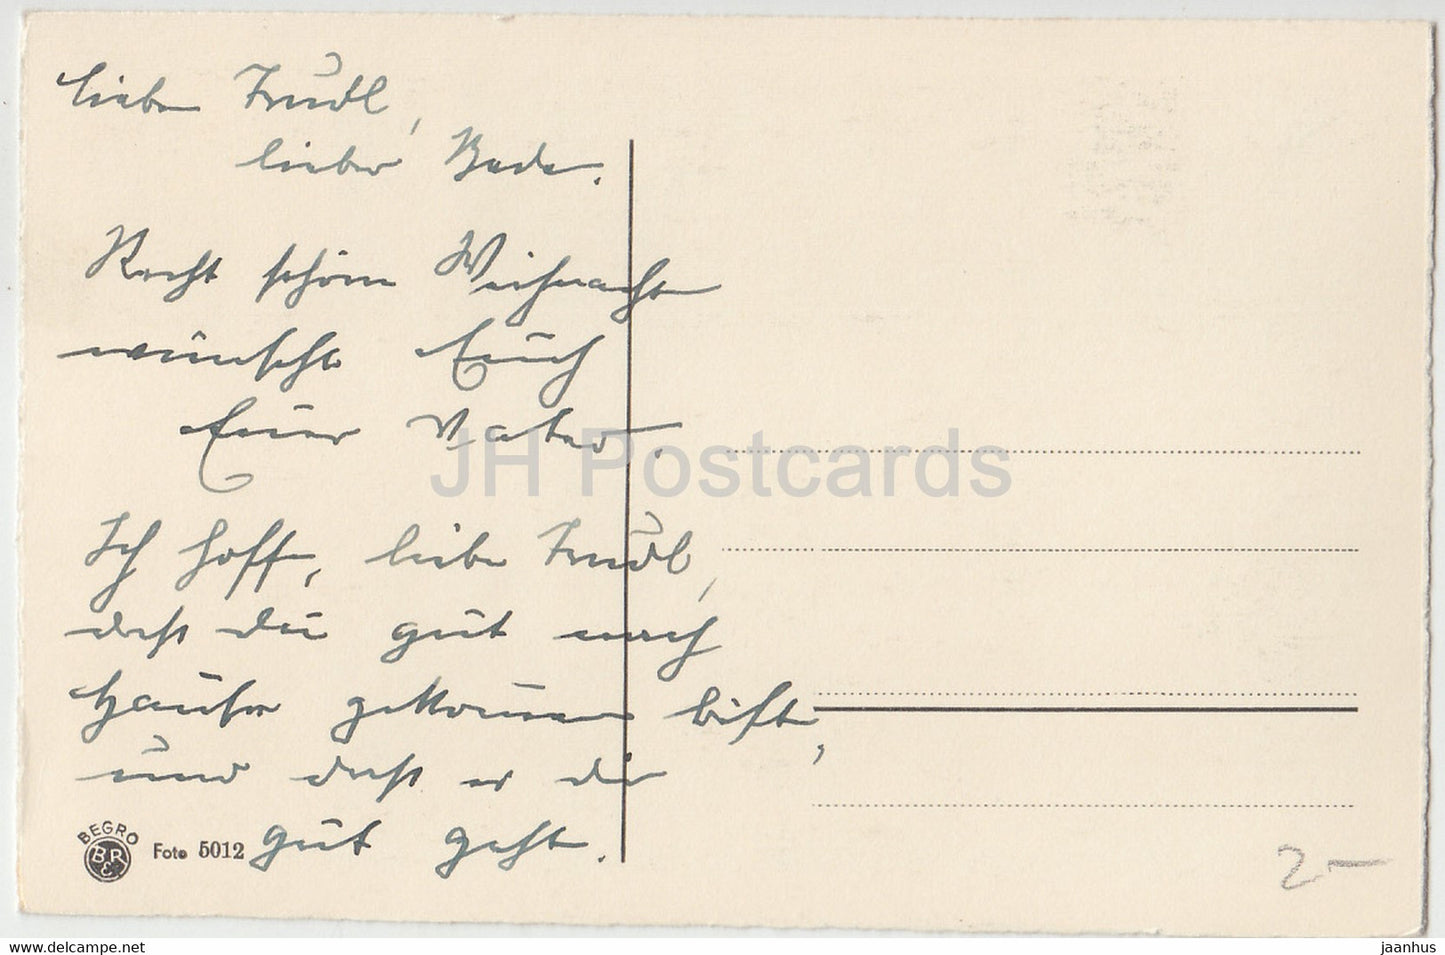 Liebe Trudl,
lieber Beda.
Recht schöne Weihnachten
wünscht Euch
Euer Vater.
JH Postcards
Ich hoffe, liebe Trudl,
daß du gut nach
Hause gekommen bist,
und daß es dir
gut geht.
BEGRO
Foto 5012
2-
www.delcampe.net
jaanhus